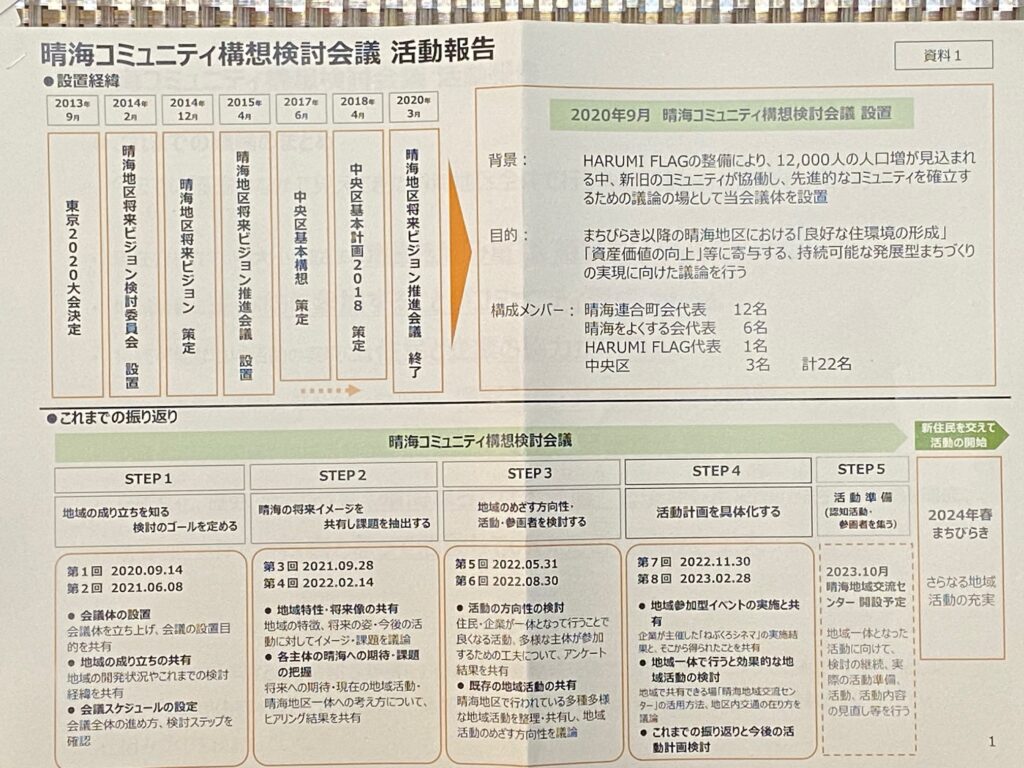 晴海コミュニティ構想検討会議 活動報告
資料1
●設置経緯
2013年
9月
東京2020大会決定
2014年
2月
晴海地区将来ビジョン検討委員会 設置
2014年
12月
晴海地区将来ビジョン 策定
2015年
4月
晴海地区将来ビジョン推進会議 設置
2017年
6月
中央区基本構想 策定
2018年
4月
中央区基本計画2018 策定
2020年
3月
晴海地区将来ビジョン推進会議 終了
2020年9月 晴海コミュニティ構想検討会議 設置
背景：
HARUMI FLAGの整備により、12,000人の人口増が見込まれ
る中、新旧のコミュニティが協働し、先進的なコミュニティを確立す
るための議論の場として当会議体を設置
目的：
まちびらき以降の晴海地区における「良好な住環境の形成」
「資産価値の向上」等に寄与する、持続可能な発展型まちづくり
の実現に向けた議論を行う
構成メンバー：
晴海連合町会代表 12名
晴海をよくする会代表 6名
HARUMI FLAG代表 1名
中央区 3名 計22名
●これまでの振り返り
晴海コミュニティ構想検討会議
新住民を交えて
活動の開始
STEP1
地域の成り立ちを知る
検討のゴールを定める
第1回 2020.09.14
第2回 2021.06.08
● 会議体の設置
会議体を立ち上げ、会議の設置目
的を共有
● 地域の成り立ちの共有
地域の開発状況やこれまでの検討
経緯を共有
● 会議スケジュールの設定
会議全体の進め方、検討ステップを
確認
STEP2
晴海の将来イメージを
共有し課題を抽出する
第3回 2021.09.28
第4回 2022.02.14
● 地域特性・将来像の共有
地域の特徴、将来の姿・今後の活
動に対してイメージ・課題を議論
● 各主体の晴海への期待・課題
の把握
将来への期待・現在の地域活動・
晴海地区一体への考え方について、
ヒアリング結果を共有
STEP3
地域のめざす方向性・
活動・参画者を検討する
第5回 2022.05.31
第6回 2022.08.30
● 活動の方向性の検討
住民・企業が一体となって行うことで
良くなる活動、多様な主体が参加
するための工夫について、アンケート
結果を共有
● 既存の地域活動の共有
晴海地区で行われている多種多様
な地域活動を整理・共有し、地域
活動のめざす方向性を議論
STEP4
活動計画を具体化する
第7回 2022.11.30
第8回 2023.02.28
● 地域参加型イベントの実施と共
有
企業が主催した「ねぶくろシネマ」の実施結
果と、そこから得られたことを共有
● 地域一体で行うと効果的な地
域活動の検討
地域で共有できる場「晴海地域交流セン
ター」の活用方法、地区内交通の在り方を
議論
● これまでの振り返りと今後の活
動計画検討
STEP5
活動準備
(認知活動・
参画者を集う)
2023.10月
晴海地域交流セ
ンター 開設予定
地域一体となった
活動に向けて、
検討の継続、実
際の活動準備、
活動、活動内容
の見直し等を行う
2024年春
まちびらき
さらなる地域
活動の充実
1